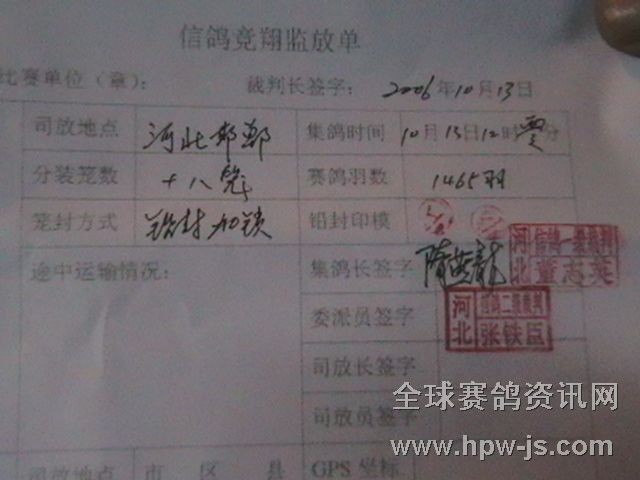 信鸽竞翔监放单
比赛单位（章）： 裁判长签字： 2006年10月13日
司放地点 河北邯郸 集鸽时间 10月13日12时零分
分装笼数 十八笼 赛鸽羽数 1465羽
笼封方式 铅封加锁 铅封印模
途中运输情况： 集鸽长签字 隋英龍 河北 信鸽一级裁判 董志英
委派员签字 河北 信鸽二级裁判 张铁臣
司放长签字
司放员签字
司放地点 市 区 县 GPS 坐标
全球赛鸽资讯网
www.hpw-js.com